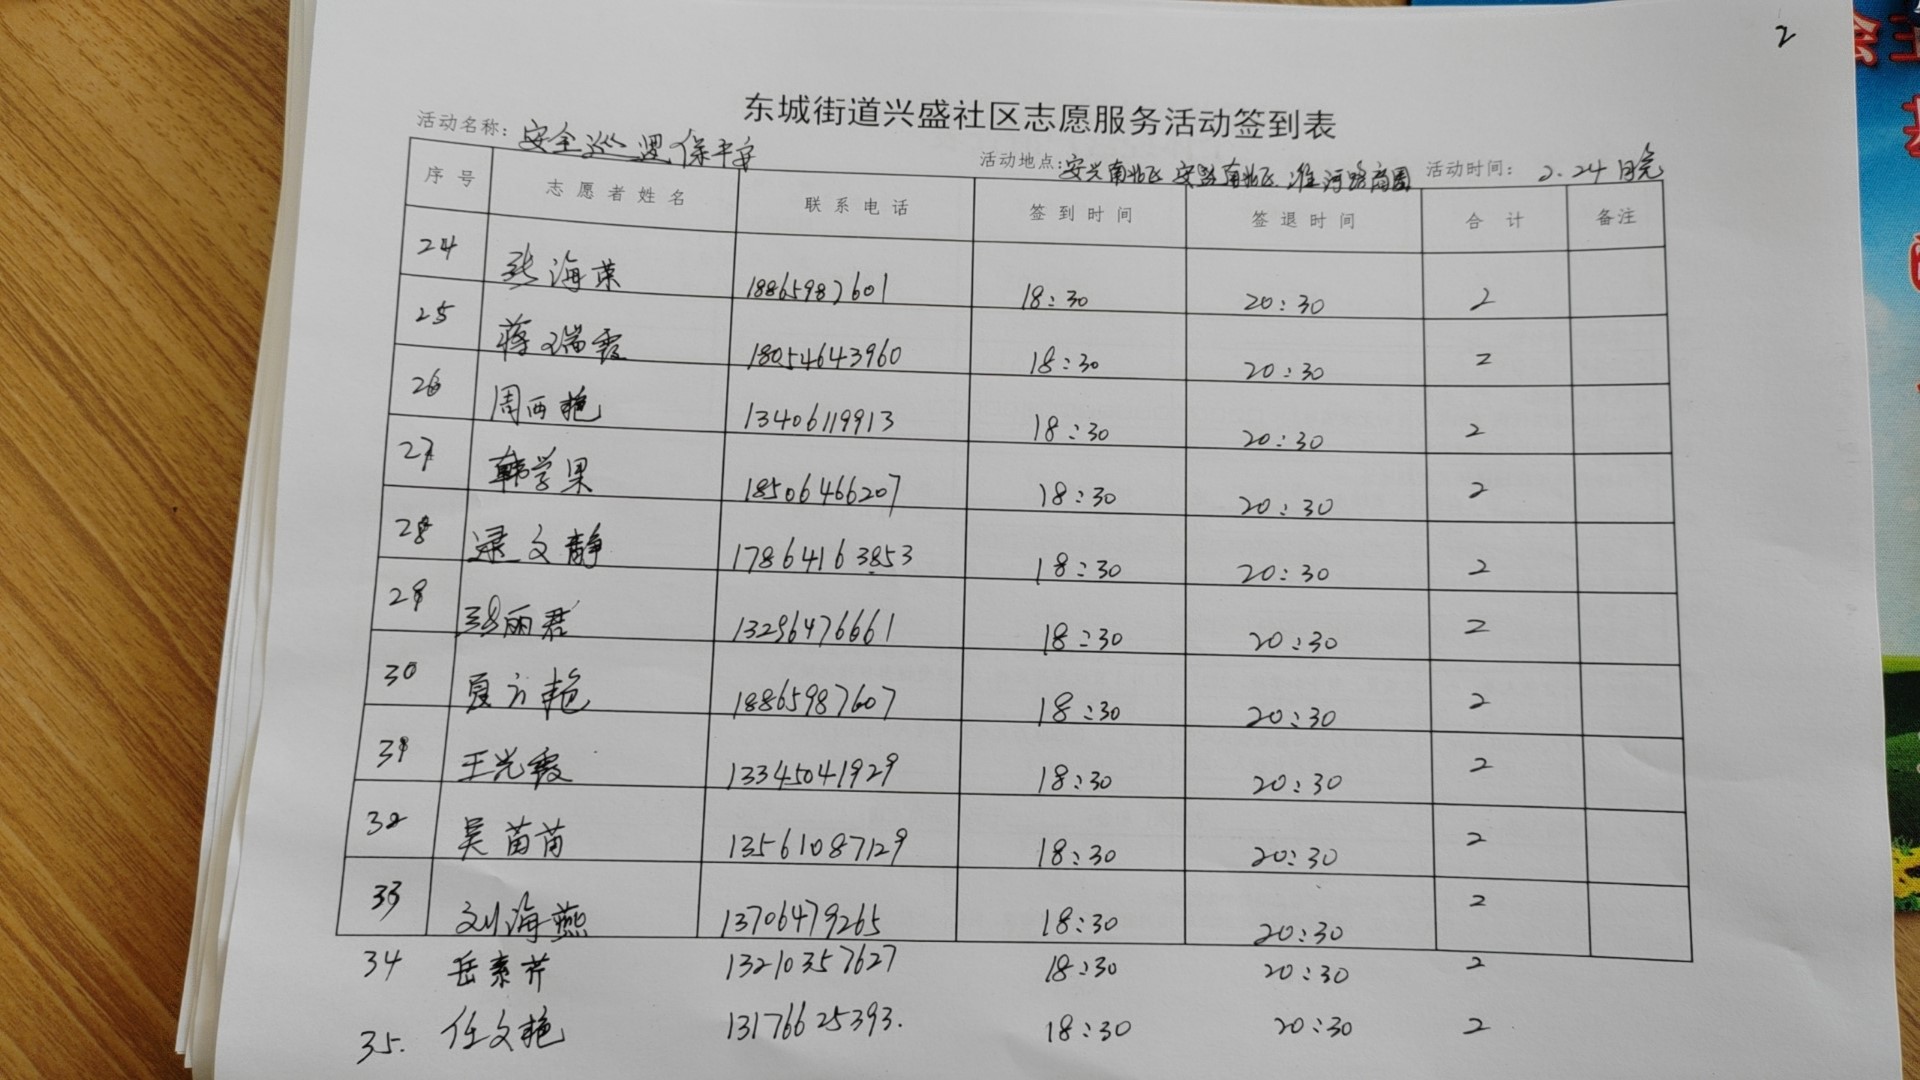 2
东城街道兴盛社区志愿服务活动签到表
活动名称: 安全巡逻保平安 活动地点: 安兴南北区 安盛南北区 淮河路商圈 活动时间: 2.24日晚
序号 志愿者姓名 联系电话 签到时间 签退时间 合计 备注
24 张海荣 18865987601 18:30 20:30 2
25 蒋瑞霞 18054643960 18:30 20:30 2
26 周西艳 13406119913 18:30 20:30 2
27 韩学果 18506466207 18:30 20:30 2
28 逯文静 17864163853 18:30 20:30 2
29 张丽君 13296476661 18:30 20:30 2
30 夏方艳 18865987607 18:30 20:30 2
31 王光霞 13345041929 18:30 20:30 2
32 吴苗苗 13561087129 18:30 20:30 2
33 刘海燕 13706479265 18:30 20:30 2
34 岳素芹 13210357627 18:30 20:30 2
35. 任文艳 13176625393. 18:30 20:30 2